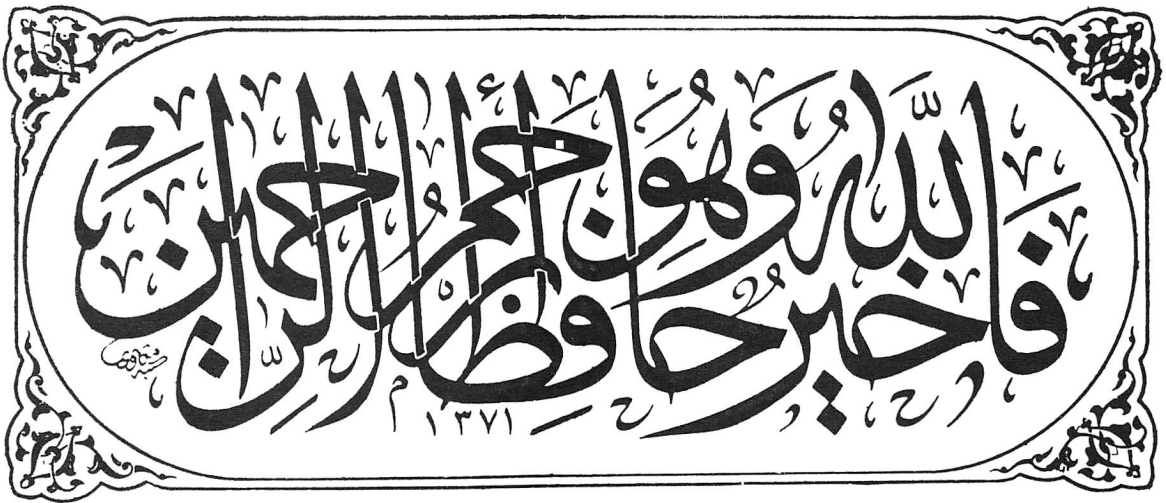 فَاللَّهُ خَيْرٌ حَافِظًا وَهُوَ أَرْحَمُ الرَّاحِمِينَ
١٣٧١